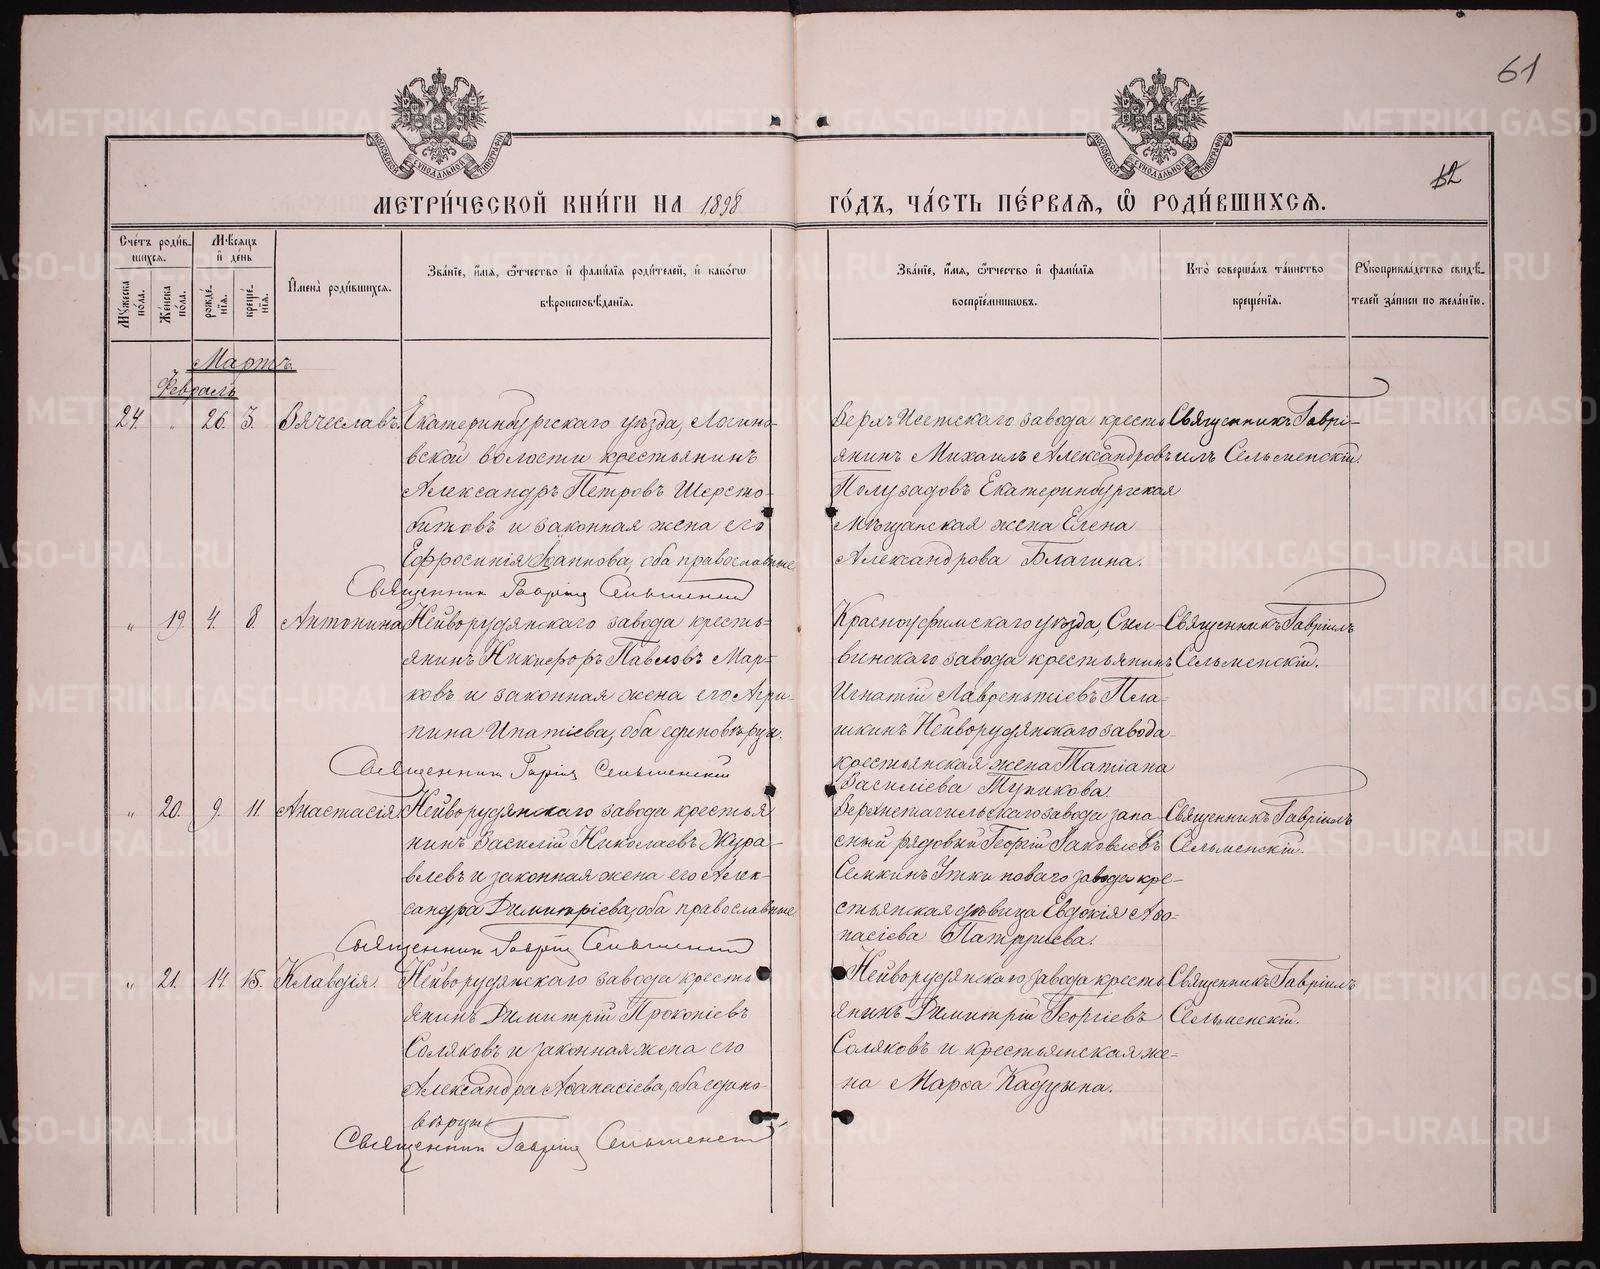 61
62
МЕТРИ́ЧЕСКОЙ КНИ́ГИ НА 1898
ГО́ДЪ, ЧА́СТЬ ПЕ́РВАЯ, Ѽ РОДИ́ВШИХСЯ.
Сче́тъ роди́в-
шихся.
Мꙋжеска по́ла.
Же́нска по́ла.
Мѣ́сяцъ
и҆ де́нь
рожде́нїя.
креще́нїя.
И҆мена̀ роди́вшихся.
Зва́нїе, и҆́мя, ѻ҆́тчество и҆ фами́лїя роди́телей, и҆ како́гѡ
вѣроисповѣ́данїя.
Зва́нїе, и҆́мя, ѻ҆́тчество и҆ фами́лїя
воспрїе́мниковъ.
Кто̀ соверша́лъ та́инство
креще́нїя.
Рꙋкоприкла́дство свидѣ́-
телей за́писи по жела́нїю.
Мартъ.
Февраль
24. " 26. 3. Вячеславъ.
Екатеринбургскаго уѣзда, Логино-
вской волости крестьянинъ
Александръ Петровъ Шерсто-
битовъ и законная жена его
Ефросинія Іоаннова, оба православные
Священник Гавріил Сельменский
Верхъ Исетскаго завода кресть
янинъ Михаилъ Александровъ
Полузадовъ Екатеринбургская
мѣщанская жена Елена
Александрова Благина.
Священникъ Гаврі-
илъ Сельменскій.
" 19. 4. 8. Антонина
Нейворудянскаго завода кресть-
янинъ Никифоръ Павловъ Мар-
ковъ и законная жена его Агри-
пина Ипатіева, оба единовѣрцы.
Священник Гавріил Сельменский
Красноуфимскаго уѣзда, Сил-
винскаго завода крестьянинъ
Игнатій Лаврентіевъ Пла-
шкинъ Нейворудянскаго завода
крестьянская жена Татіана
Василіева Тупикова.
Священникъ Гавріилъ
Сельменскій.
" 20. 9. 11. Анастасія
Нейворудянскаго завода крестья
нинъ Василій Николаевъ Жура-
влевъ и законная жена его Алек-
сандра Димитріева, оба православные
Священник Гавріил Сельменский
Верхнетагильскаго завода запа-
сный рядовый Георгій Іаковлевъ
Семкинъ Утки новаго завода кре-
стьянская дѣвица Евдокія Аѳа-
насіева Патрушева.
Священникъ Гавріилъ
Сельменскій.
" 21. 14. 15. Клавдія.
Нейворудянскаго завода кресть
янинъ Димитрій Прокопіевъ
Соляковъ и законная жена его
Александра Аѳанасіева, оба едино-
вѣрцы
Священник Гавріил Сельменский
Нейворудянскаго завода кресть
янинъ Димитрій Георгіевъ
Соляковъ и крестьянская же-
на Марѳа Кадцына.
Священникъ Гавріилъ
Сельменскій.
METRIKI.GASO-URAL.RU